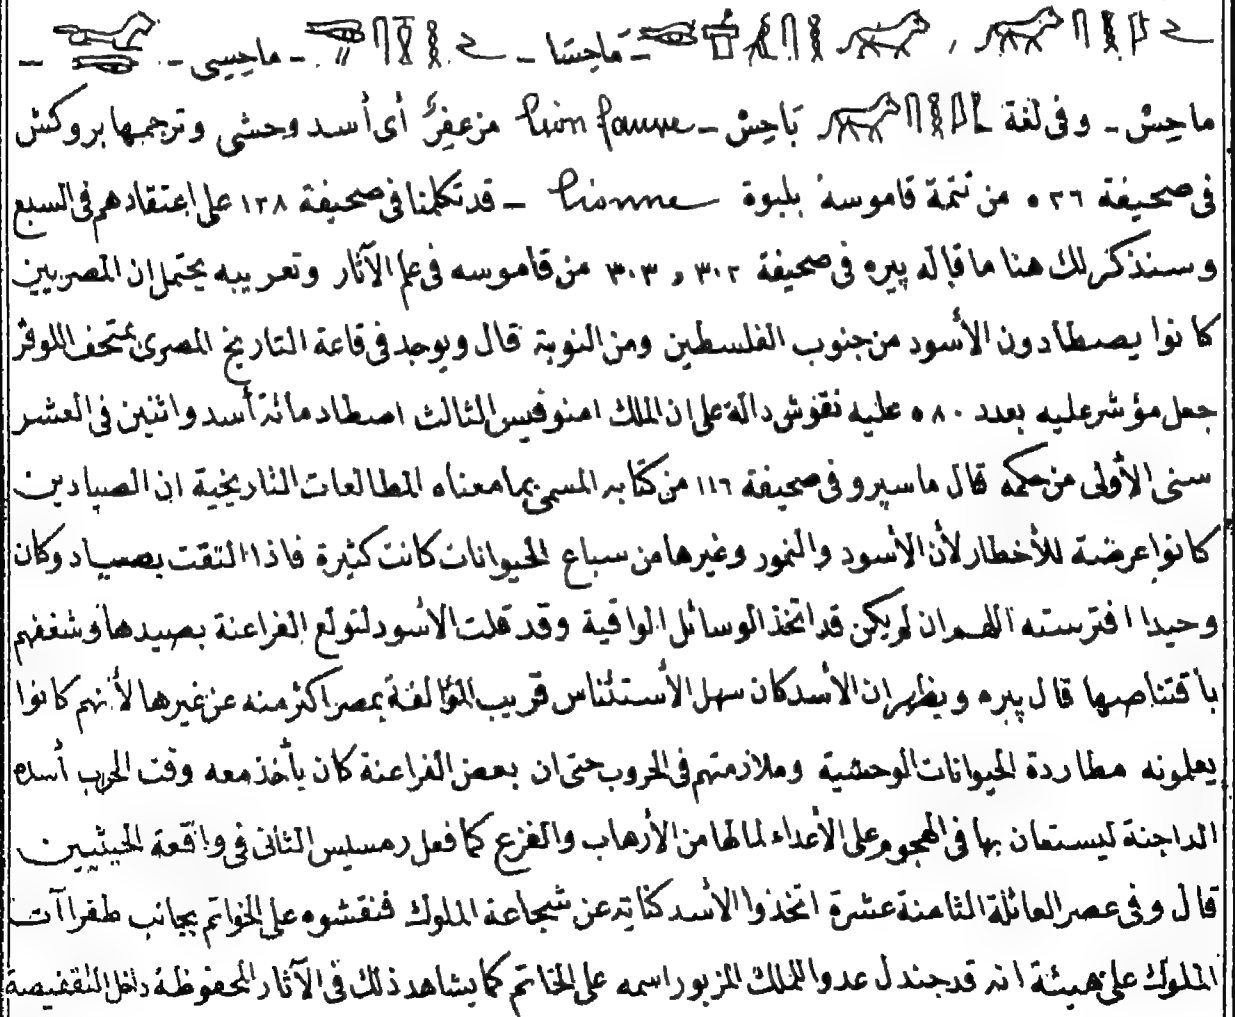 – مَاحِسَا – ماحِسِى –
ماحِسْ – وفى لغة بَاحِسْ – lion fauve مزعفِرٌ أى أسد وحشى وترجمها بروكش
فى صحيفة ٥٣٦ من تتمة قاموسه بلبوة lionne – قد تكلمنا فى صحيفة ١٣٨ على اعتقادهم فى السبع
وسنذكر لك هنا ما قاله پيره فى صحيفة ٣٠٢ و ٣٠٣ من قاموسه فى علم الآثار وتعريبه يحتمل ان المصريين
كانوا يصطادون الأسود من جنوب الفلسطين ومن النوبة قال ويوجد فى قاعة التاريخ المصرى بمتحف اللوفر
جعل مؤشر عليه بعدد ٥٨٠ عليه نقوش دالة على ان الملك امنوفيس الثالث اصطاد مائة أسد واثنين فى العشر
سنى الأولى من حكمه قال ماسپرو فى صحيفة ١١٦ من كتابه المسمى بما معناه المطالعات التاريخية ان الصيادين
كانوا عرضة للأخطار لأن الأسود والنمور وغيرها من سباع الحيوانات كانت كثيرة فاذا التقت بصياد وكان
وحيدا افترسته اللهم ان لم يكن قد اتخذ الوسائل الواقية وقد قلت الأسود لتولع الفراعنة بصيدها وشغفهم
باقتناصها قال پيره ويظهر ان الأسد كان سهل الأستئناس قريب المؤالفة بمصر اكثر منه عن غيرها لأنهم كانوا
يعلمونه مطاردة الحيوانات الوحشية وملازمتهم فى الحروب حتى ان بعض الفراعنة كان يأخذ معه وقت الحرب أسده
الداجنة ليستعان بها فى الهجوم على الأعداء لما لها من الأرهاب والفزع كما فعل رمسيس الثانى فى واقعة الحيثيين
قال وفى عصر العائلة الثامنة عشرة اتخذوا الأسد كناية عن شجاعة الملوك فنقشوه على الخواتم بجانب طغراآت
الملوك على هيئة انه قد جندل عدوا للملك المزبور اسمه على الخاتم كما يشاهد ذلك فى الآثار المحفوظة داخل التقفيصة